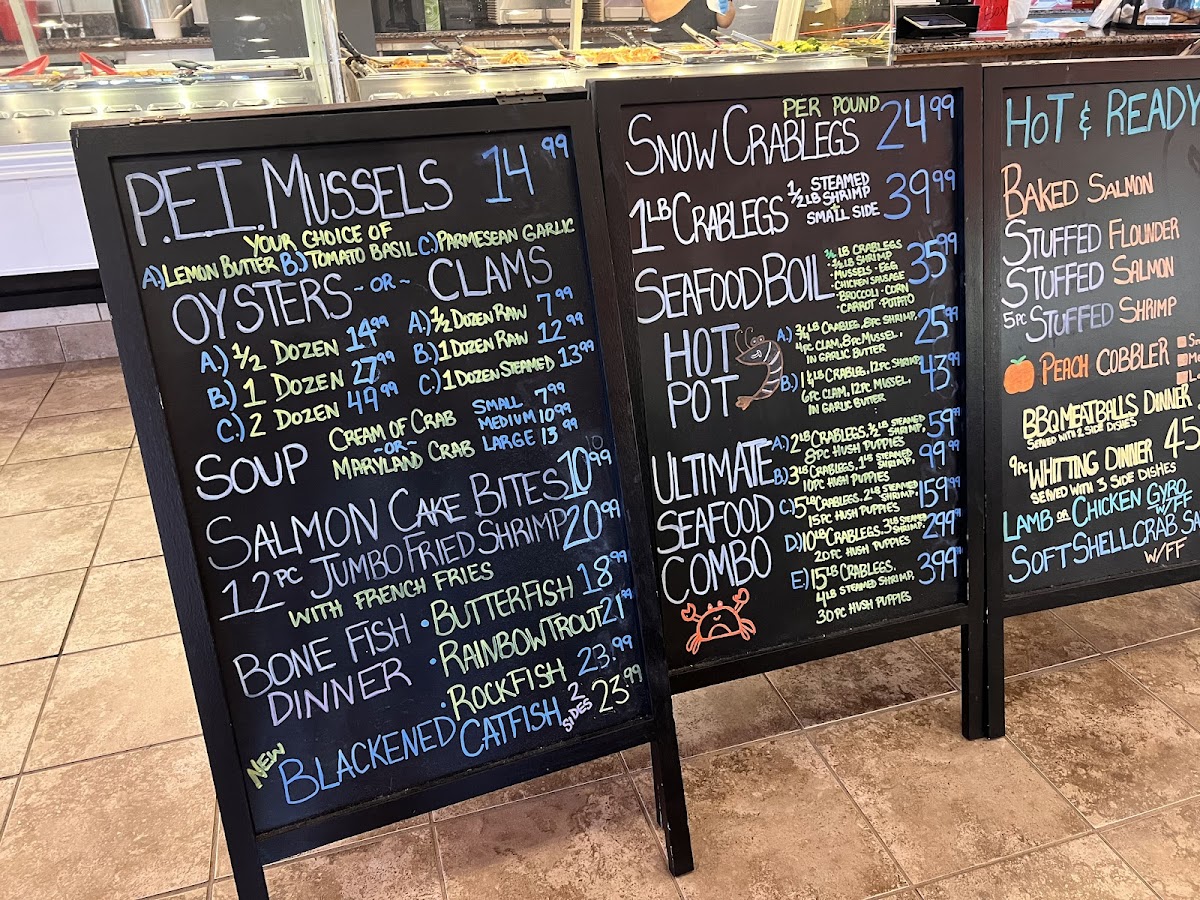 P.E.I. MUSSELS 14 99
YOUR CHOICE OF
A.) LEMON BUTTER B.) TOMATO BASIL C.) PARMESEAN GARLIC
OYSTERS ~ OR ~ CLAMS
A.) 1/2 DOZEN 14 99
B.) 1 DOZEN 27 99
C.) 2 DOZEN 49 99
A.) 1/2 DOZEN RAW 7 99
B.) 1 DOZEN RAW 12 99
C.) 1 DOZEN STEAMED 13 99
SOUP
CREAM OF CRAB
~ OR ~
MARYLAND CRAB
SMALL 7 99
MEDIUM 10 99
LARGE 13 99
SALMON CAKE BITES 10 99
12 PC JUMBO FRIED SHRIMP 20 99
WITH FRENCH FRIES
BONE FISH
DINNER
· BUTTERFISH 18 99
· RAINBOW TROUT 21 99
· ROCKFISH 23.99
NEW BLACKENED CATFISH 2 SIDES 23 99
PER POUND
SNOW CRABLEGS 24 99
1 LB CRABLEGS
1/2 STEAMED
1/2 LB SHRIMP
SMALL SIDE
39 99
SEAFOOD BOIL
LB CRABLEGS
LB SHRIMP
· MUSSELS · EGG
· CHICKEN SAUSAGE
· BROCOLLI · CORN
· CARROT · POTATO
35 99
HOT
POT
A.) 3/4 LB CRABLEG, 8PC SHRIMP,
4PC CLAM, 8PC MUSSEL,
IN GARLIC BUTTER
25 99
B.) 1 1/4 LB CRABLEG, 12PC SHRIMP
6PC CLAM, 12PC MUSSEL,
IN GARLIC BUTTER
43 99
ULTIMATE
SEAFOOD
COMBO
A.) 2 LB CRABLEGS, 1/2 LB STEAMED SHRIMP,
8PC HUSH PUPPIES
59 99
B.) 3 LB CRABLEGS, 1 LB STEAMED SHRIMP,
10PC HUSH PUPPIES
99 99
C.) 5 LB CRABLEGS, 2 LB STEAMED SHRIMP,
15PC HUSH PUPPIES
159 99
D.) 10 LB CRABLEGS, 3 LB STEAMED SHRIMP,
20PC HUSH PUPPIES
299 99
E.) 15 LB CRABLEGS,
4 LB STEAMED SHRIMP,
30PC HUSH PUPPIES
399
HOT & READY
BAKED SALMON
STUFFED FLOUNDER
STUFFED SALMON
5PC STUFFED SHRIMP
PEACH COBBLER
BBQ MEATBALLS DINNER
SERVED WITH 2 SIDE DISHES
9PC WHITTING DINNER 45
SERVED WITH 3 SIDE DISHES
LAMB OR CHICKEN GYRO
W/FF
SOFT SHELL CRAB
W/FF